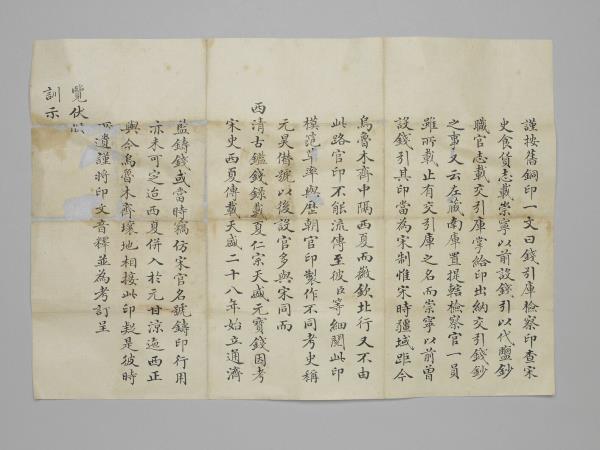 謹按舊銅印一文曰錢引庫檢察印查宋
史食貨志載崇寧以前設錢引以代鹽鈔
職官志載交引庫掌給印出納交引錢鈔
之事又云左藏南庫置提轄檢察官一員
雖所載止有交引庫之名而崇寧以前曾
設錢引其印當為宋制惟宋時疆域距今
烏魯木齊中隔西夏而徽欽北行又不由
此路官印不能流傳至彼臣等細閱此印
模範草率與歷朝官印製作不同考史稱
元昊僭號以後設官多與宋同而
西清古鑑錢錄載夏仁宗天盛元寶錢因考
宋史西夏傳載天盛二十八年始立通濟
監鑄錢或當時竊仿宋官名號鑄印行用
亦未可定迨西夏併入於元甘涼迤西正
與今烏魯木齊壤地相接此印疑是彼時
所遺謹將印文音釋並為考訂呈
覽伏候
訓示